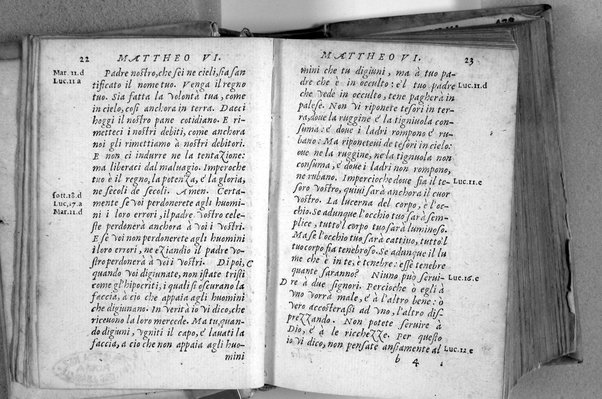 22 MATTHEO VI.
Mar. 11.d
Luc. 11.a
Padre nostro, che sei ne cieli, sia san
tificato il nome tuo. Venga il regno
tuo. Sia fatta la volontà tua, come
in cielo, così anchora in terra. Dacci
hoggi il nostro pane cotidiano. E ri-
metteci i nostri debiti, come anchora
noi gli rimettiamo à nostri debitori.
E non ci indurre ne la tentazione:
ma liberaci dal maluagio. Imperoche
tuo è il regno, la potenza, e la gloria,
ne secoli de secoli. Amen. Certa-
sott. 18.d
Luc. 17.a
Mar. 11.d
mente se voi perdonerete agli huomi
ni i loro errori, il padre vostro cele-
ste perdonerà anchora à voi i vostri.
E se voi non perdonerete agli huomini
i loro errori, ne eziandio il padre vo-
stro perdonerà à voi i vostri. Di poi, C
quando voi digiunate, non istate tristi
come gl'hipocriti, i quali si oscurano la
faccia, à cio che appaia agli huomini
che digiunano. In verità io vi dico, che
riceuono la loro mercede. Ma tu quan-
do digiuni, vgniti il capo, e lauati la
faccia, à cio che non appaia agli huo-
mini
MATTHEO VI. 23
mini che tu digiuni, ma à tuo pa-
dre che è in occulto: e'l tuo padre
Luc. 11.d
che vede in occulto, tene pagherà in
palese. Non vi riponete tesori in ter-
ra, doue la ruggine e la tignuola con-
suma: e doue i ladri rompono e ru-
bano: Ma riponeteui de tesori in cielo:
oue ne la ruggine, ne la tignuola non
consuma, e doue i ladri non rompono,
ne rubano. Impercioche doue sia il te-
Luc. 11.e
soro vostro, quiui sarà anchora il cuor
vostro. La lucerna del corpo, è l'oc-
chio. Se adunque l'occhio tuo sarà sem-
plice, tutto'l corpo tuo sarà luminoso.
Ma se l'occhio tuo sarà cattiuo, tutto'l
tuo corpo sia tenebroso. Se adunque il lu
me che è in te, è tenebre: esse tenebre
quante saranno? Niuno può serui-
Luc. 16.c
D re à due signori. Percioche ò egli à
vno vorrà male, e à l'altro bene: ò
vero accosterassi ad vno, l'altro dis-
prezzando. Non potete seruire à
Dio, e à le ricchezze. Per questo
io vi dico, non pensate ansiamente al
Luc. 12.e
b 4